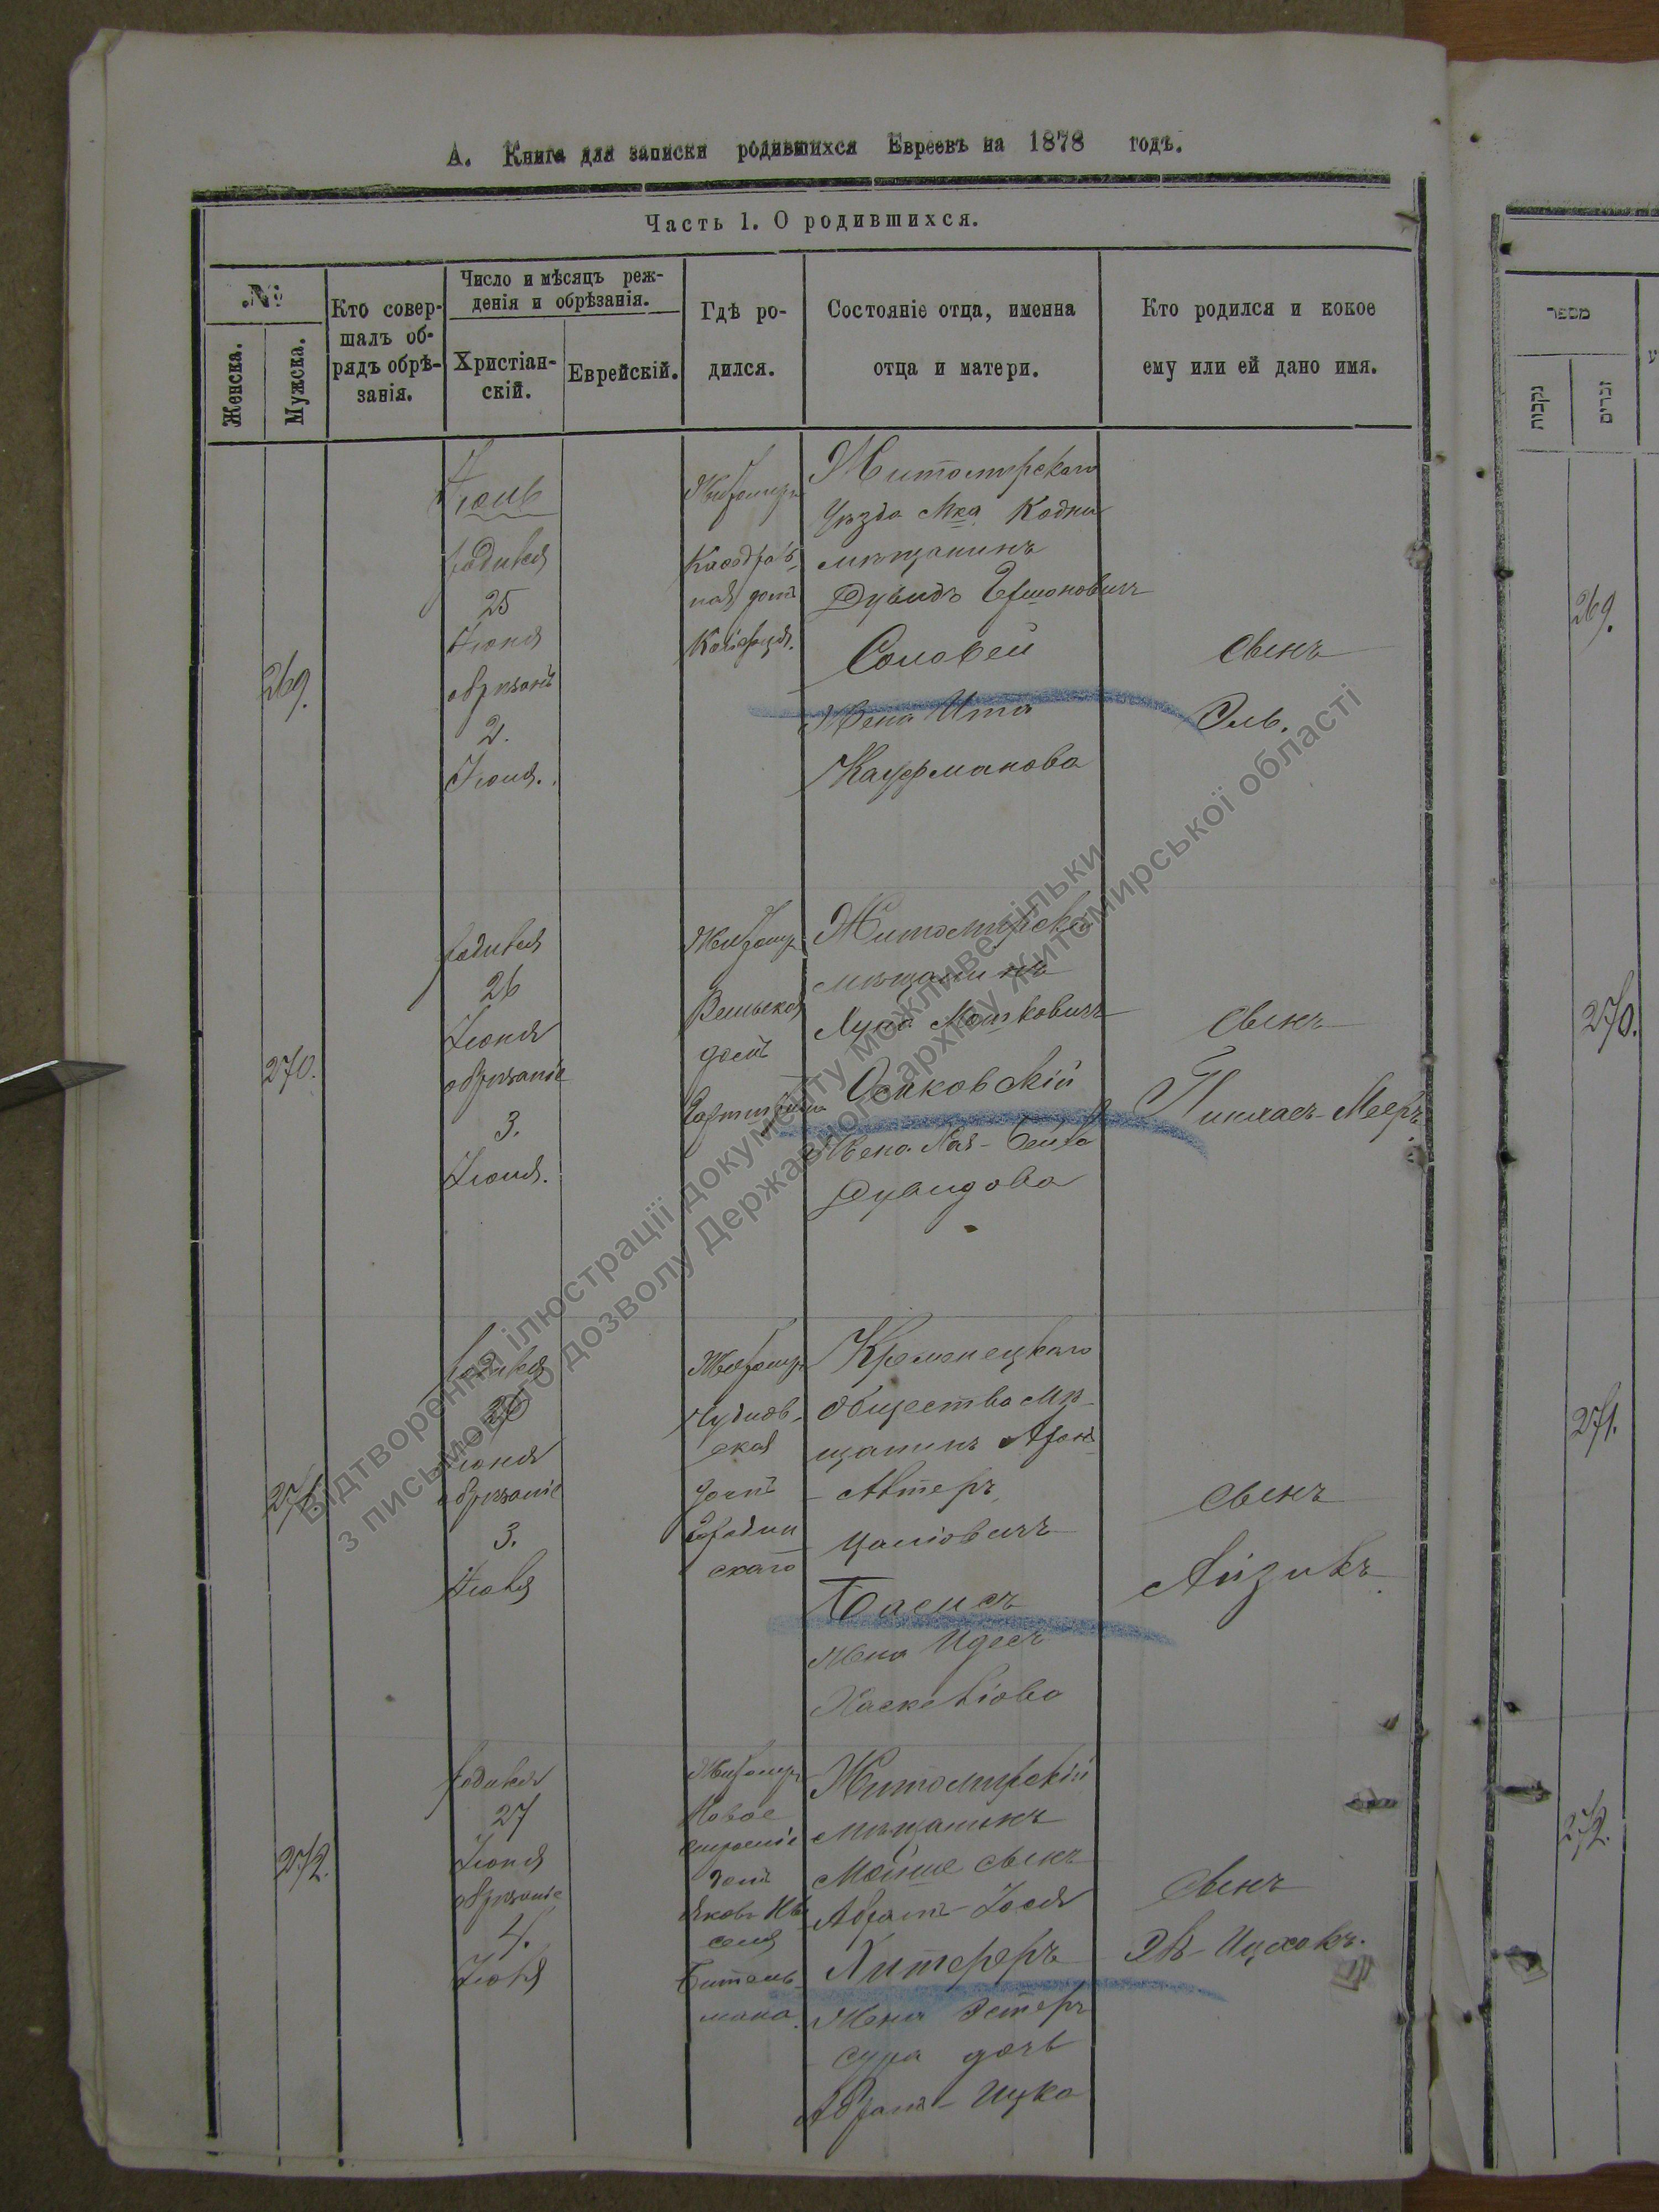 А. Книга для записки родившихся Евреевъ на 1878 годъ.
Часть 1. О родившихся.
№
Женска.
Мужска.
Кто совер-
шалъ об-
рядъ обрѣ-
занія.
Число и мѣсяцъ реж-
денія и обрѣзанія.
Христіан-
скій.
Еврейскій.
Гдѣ ро-
дился.
Состояніе отца, именна
отца и матери.
Кто родился и кокое
ему или ей дано имя.
269.
родився
25
Іюня
обрѣзанъ
2.
Житомиръ
домъ
Житомирскаго
уѣзда Мка Кодни
мѣщанинъ
Дувидъ Гершоновичъ
Соловей
Жена Ита
Кауфманова
сынъ
Эль.
270.
родився
26
Іюня
обрѣзаніе
3.
Житомир
Вильская
домъ
Житомирскій
мѣщанинъ
Мошковичъ
Осиковскій
Жена Хая-Бейла
Дувидова
сынъ
Пинхасъ-Мееръ
271.
родився
26
Іюня
обрѣзаніе
3.
Житомир
Чуднов-
ская
домъ
скаго
Кременецкаго
общества мѣ-
щанинъ Аронъ
Цаліовичъ
Басисъ
жена Идесъ
Хаскеліова
сынъ
Айзикъ
272.
родився
27
Іюня
обрѣзаніе
4.
Житомир
Новое
строеніе
домъ
Житомирскій
мѣщанинъ
Мойше сынъ
Абрамъ-Іося
Хитереръ
Жена Эстеръ
Сура дочь
Абрамъ-Ицка
сынъ
Ицхокъ.
מספר
נקבות
זכרים
269.
270.
271.
272.
Відтворення ілюстрації документу можливе тільки
з письмового дозволу Державного архіву Житомирської області